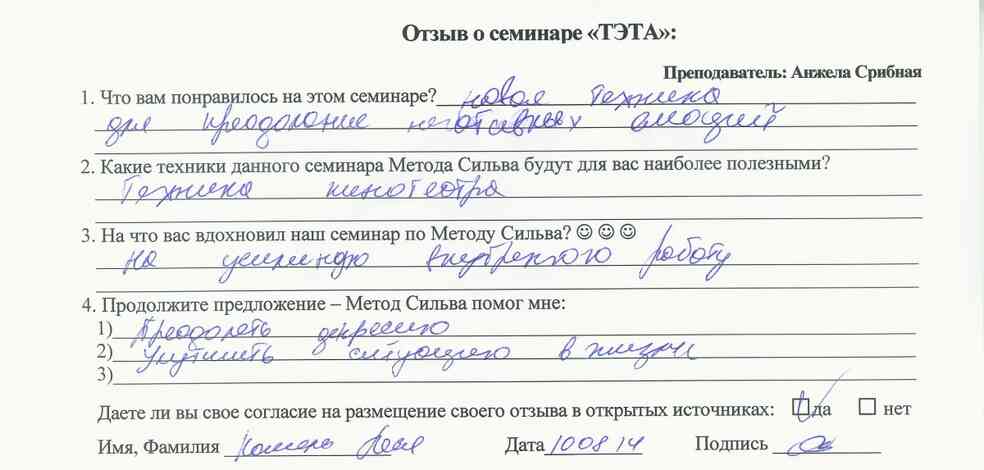 Отзыв о семинаре «ТЭТА»:
Преподаватель: Анжела Срибная
1. Что вам понравилось на этом семинаре? новая техника
для преодоление негативных эмоций
2. Какие техники данного семинара Метода Сильва будут для вас наиболее полезными?
Техника кинотеатра
3. На что вас вдохновил наш семинар по Методу Сильва? ☺ ☺ ☺
На внутреннюю работу
4. Продолжите предложение – Метод Сильва помог мне:
1) Преодолеть депрессию
2) Улутшить ситуацию в жизни
3)
Даете ли вы свое согласие на размещение своего отзыва в открытых источниках: да нет
Имя, Фамилия Дата 100814 Подпись